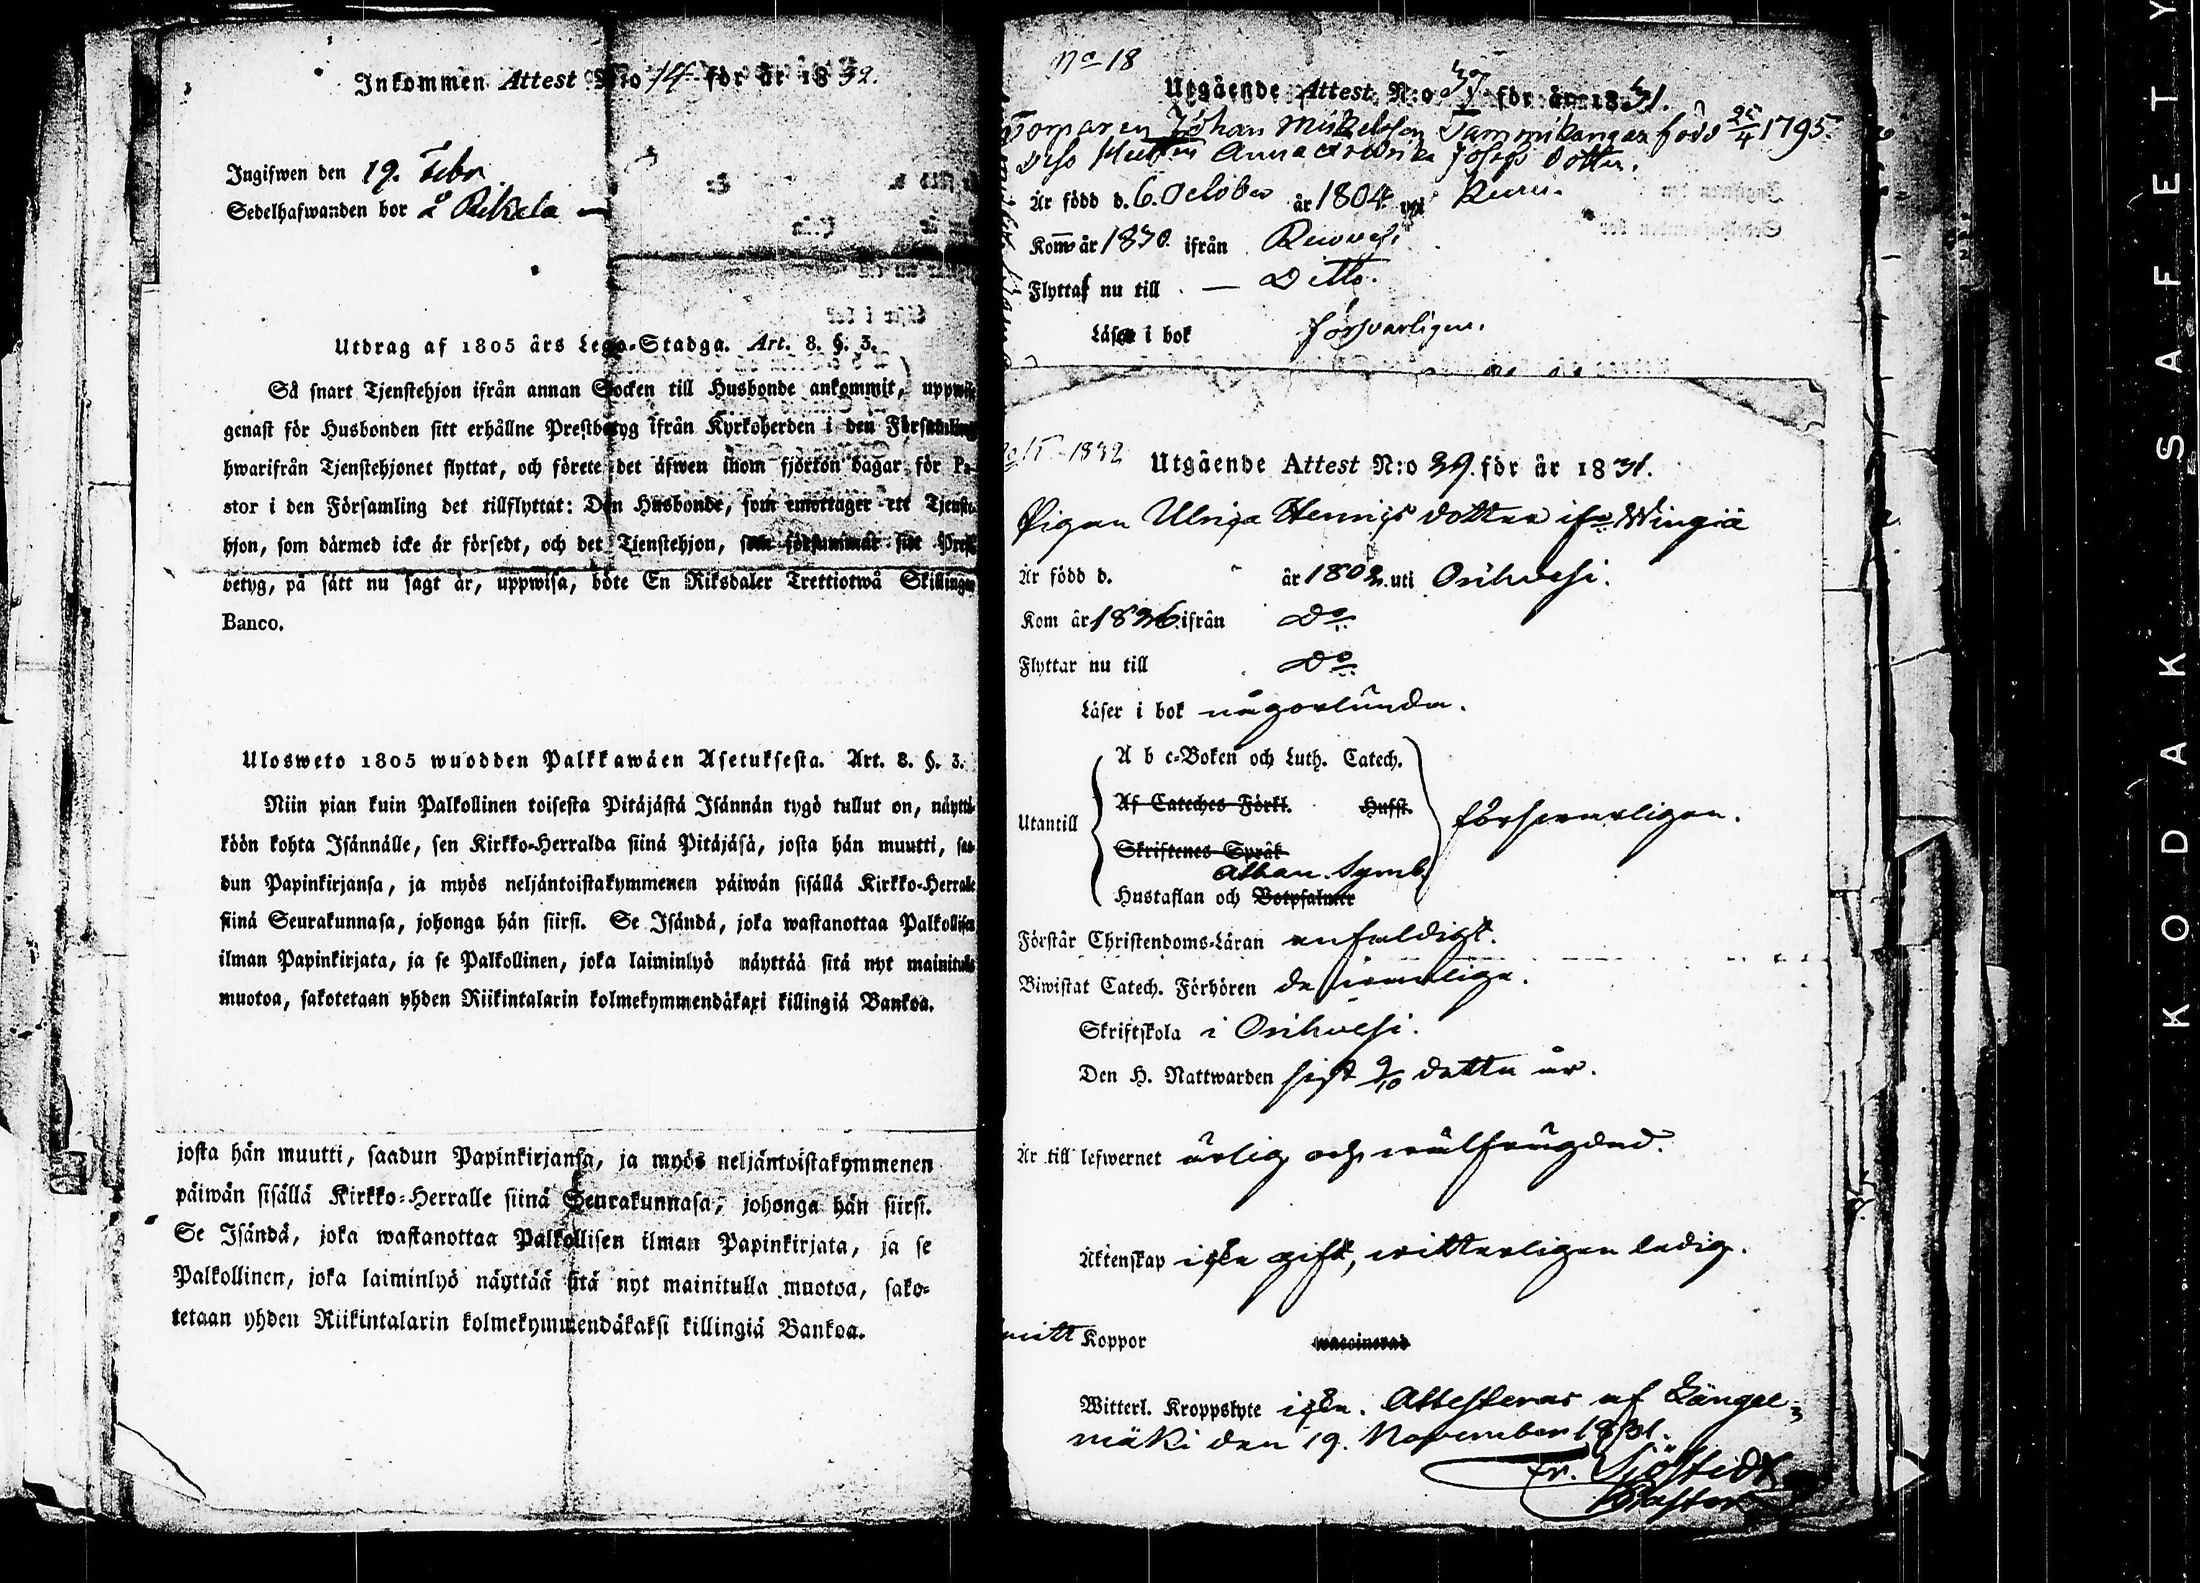 Inkommen Attest N:o 14 för år 1832.
Ingifwen den 19. Febr
Sedelhafwanden bor å Rikala
Utdrag af 1805 års Lego-Stadga. Art. 8. §. 3.
Så snart Tjenstehjon ifrån annan Socken till Husbonde ankommit, uppwise
genast för Husbonden sitt erhållne Prestbetyg ifrån Kyrkoherden i den Församling
hwarifrån Tjenstehjonet flyttat, och förete det äfwen inom fjorton dagar för Pa-
stor i den Församling det tillflyttat: Den Husbonde, som emottager ett Tjenste-
hjon, som därmed icke är försedt, och det Tjenstehjon, som försummar sitt Prest-
betyg, på sätt nu sagt är, uppwisa, böte En Riksdaler Trettiotwå Skillingar
Banco.
Ulosweto 1805 wuodden Palkkawäen Asetuksesta. Art. 8. §. 3.
Niin pian kuin Palkollinen toisesta Pitäjästä Isännän tygö tullut on, näyttä-
köön kohta Isännälle, sen Kirkko-Herralda siinä Pitäjäsä, josta hän muutti, saa-
dun Papinkirjansa, ja myös neljäntoistakymmenen päiwän sisällä Kirkko-Herralle
siinä Seurakunnasa, johonga hän siirsi. Se Isändä, joka wastanottaa Palkollisen
ilman Papinkirjata, ja se Palkollinen, joka laiminlyö näyttää sitä nyt mainitulla
muotoa, sakotetaan yhden Riikintalarin kolmekymmendäkaxi killingiä Bankoa.
josta hän muutti, saadun Papinkirjansa, ja myös neljäntoistakymmenen
päiwän sisällä Kirkko-Herralle siinä Seurakunnasa, johonga hän siirsi.
Se Isändä, joka wastanottaa Palkollisen ilman Papinkirjata, ja se
Palkollinen, joka laiminlyö näyttää sitä nyt mainitulla muotoa, sako-
tetaan yhden Riikintalarin kolmekymmendäkaksi killingiä Bankoa.
No 18
Utgående Attest N:o 37 för år 1831.
Johan Mickelsson Tammikangas född 25/4 1795.
Dess Hustru Anna Josephs dotter.
Är född d. 6. October år 1804
Kom år 1830. ifrån Ruovesi
Flyttar nu till — Ditto.
Läser i bok försvarligen.
1832 Utgående Attest N:o 39. för år 1831.
Pigan Ulriga Henrigs dotter ifr. Wingiä
Är född d. år 1802. uti Orihvesi.
Kom år 1826. ifrån Do
Flyttar nu till Do
Läser i bok någorlunda.
A b c-Boken och Luth. Catech.
Af Cateches Förkl. Hufst.
Utantill försvarligen.
Skriftenes Språk
Athan. Symb.
Hustaflan och Botpsalmer
Förstår Christendoms-Läran enfaldigt.
Biwistat Catech. Förhören de senaste.
Skriftskola i Orihvesi.
Den H. Nattwarden sist 9/10 detta år.
Är till lefwernet ärlig och wälfrägdad.
Äktenskap icke gift, witterligen ledig.
haft Koppor waccinerad
Witterl. Kroppslyte icke. Attesteras af Längel-
mäki den 19. November 1831.
Fr. Sjöstedt
Pastor
KODAK SAFETY